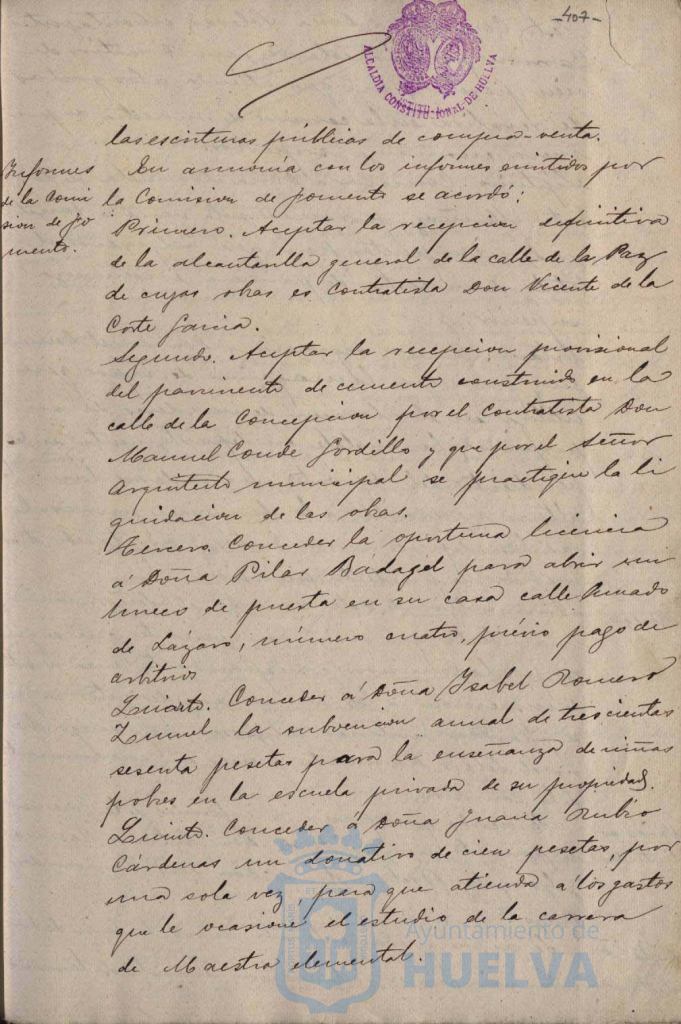 -407-
ALCALDIA CONSTITUCIONAL DE HUELVA
las escrituras públicas de compra-venta.
Informes
de la Comi
sion de Fo
mento.
En armonía con los informes emitidos por
la Comision de Fomento se acordó:
Primero. Aceptar la recepcion definitiva
de la alcantarilla general de la calle de la Paz
de cuyas obras es contratista Don Vicente de la
Corte Garcia.
Segundo. Aceptar la recepcion provisional
del pavimento de cemento construido en la
calle de la Concepcion por el contratista Don
Manuel Conde Gordillo y que por el Señor
Arquitecto municipal se practique la li
quidacion de las obras.
Tercero. Conceder la oportuna licencia
á Doña Pilar Badagel para abrir un
hueco de puerta en su casa calle
de Lázaro, número cuatro, prévio pago de
arbitrios
Cuarto. Conceder á Doña Isabel Romero
la subvencion anual de trescientas
sesenta pesetas para la enseñanza de niñas
pobres en la escuela privada de su propiedad.
Quinto. Conceder á Doña Juana Rubio
Cárdenas un donativo de cien pesetas, por
una sola vez, para que atienda á los gastos
que le ocasione el estudio de la carrera
de Maestra elemental.
Ayuntamiento de
HUELVA